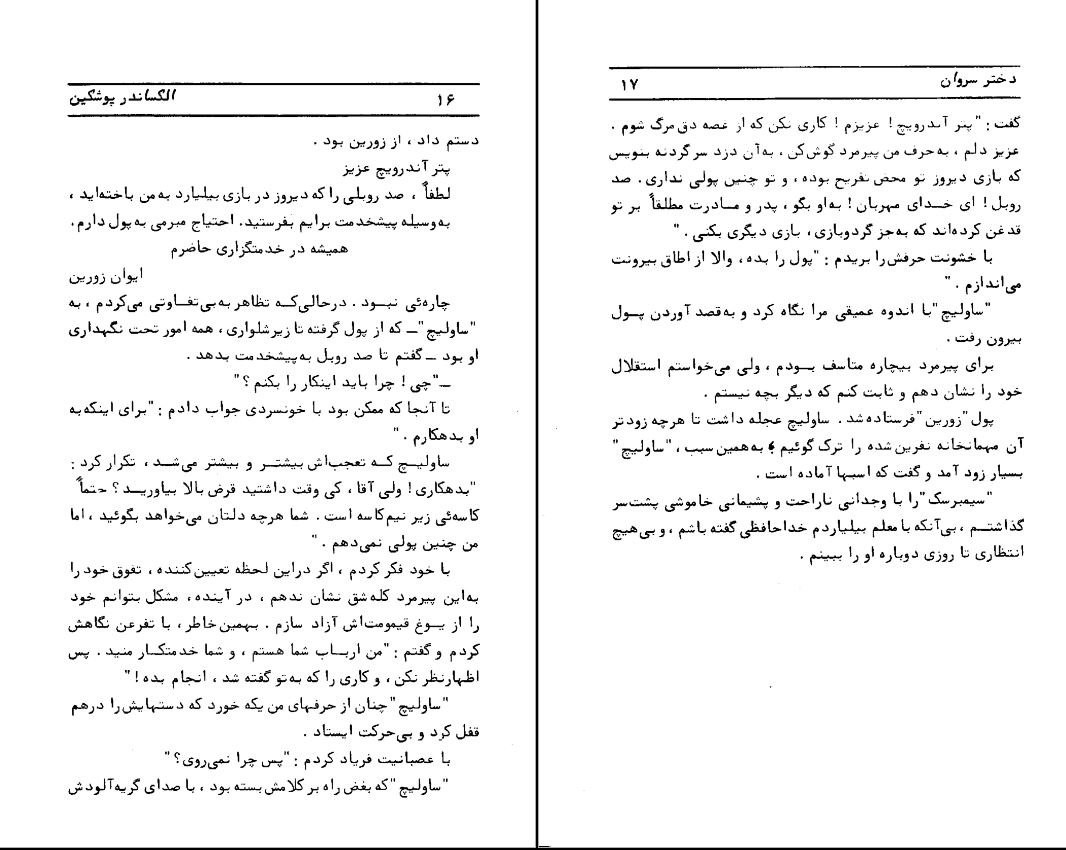 الکساندر پوشکین ۱۶
دستم داد ، از زورین بود .
پتر آندرویچ عزیز
لطفاً ، صد روبلی را که دیروز در بازی بیلیارد به من باخته‌اید ،
به‌وسیله پیشخدمت برایم بفرستید. احتیاج مبرمی به پول دارم.
همیشه در خدمتگزاری حاضرم
ایوان زورین
چاره‌ئی نبود . درحالی‌که تظاهر به بی‌تفاوتی می‌کردم ، به
"ساولیچ" ــ که از پول گرفته تا زیرشلواری ، همه امور تحت نگهداری
او بود ــ گفتم تا صد روبل به‌پیشخدمت بدهد .
ــ"چی ! چرا باید اینکار را بکنم ؟"
تا آنجا که ممکن بود با خونسردی جواب دادم : "برای اینکه به
او بدهکارم . "
ساولیچ که تعجب‌اش بیشتر و بیشتر می‌شد ، تکرار کرد :
"بدهکاری ! ولی آقا ، کی وقت داشتید قرض بالا بیاورید ؟ حتماً
کاسه‌ئی زیر نیم‌کاسه است . شما هرچه دلتان می‌خواهد بگوئید ، اما
من چنین پولی نمی‌دهم . "
با خود فکر کردم ، اگر دراین لحظه تعیین‌کننده ، تفوق خود را
به‌این پیرمرد کله‌شق نشان ندهم ، در آینده ، مشکل بتوانم خود
را از یوغ قیمومت‌اش آزاد سازم . بهمین خاطر ، با تفرعن نگاهش
کردم و گفتم : "من ارباب شما هستم ، و شما خدمتکار منید . پس
اظهارنظر نکن ، و کاری را که به‌تو گفته شد ، انجام بده ! "
"ساولیچ" چنان از حرفهای من یکه خورد که دستهایش را درهم
قفل کرد و بی‌حرکت ایستاد .
با عصبانیت فریاد کردم : "پس چرا نمی‌روی؟ "
"ساولیچ" که بغض راه بر کلامش بسته بود ، با صدای گریه‌آلودش
دختر سروان ۱۷
گفت : "پتر آندرویچ ! عزیزم ! کاری نکن که از غصه دق مرگ شوم .
عزیز دلم ، به‌حرف من پیرمرد گوش‌کن ، به‌آن دزد سر گردنه بنویس
که بازی دیروز تو محض تفریح بوده ، و تو چنین پولی نداری. صد
روبل! ای خدای مهربان! به‌او بگو ، پدر و مادرت مطلقاً بر تو
قدغن کرده‌اند که به‌جز گردوبازی ، بازی دیگری بکنی . "
با خشونت حرفش‌را بریدم : "پول را بده ، والا از اطاق بیرونت
می‌اندازم . "
"ساولیچ" با اندوه عمیقی مرا نگاه کرد و به‌قصد آوردن پول
بیرون رفت .
برای پیرمرد بیچاره متاسف بودم ، ولی می‌خواستم استقلال
خود را نشان دهم و ثابت کنم که دیگر بچه نیستم .
پول "زورین" فرستاده شد . ساولیچ عجله داشت تا هرچه زودتر
آن مهمانخانه نفرین شده را ترک گوئیم ؛ به‌همین سبب ، "ساولیچ"
بسیار زود آمد و گفت که اسبها آماده است .
"سیمبرسک" را با وجدانی ناراحت و پشیمانی خاموشی پشت‌سر
گذاشتم ، بی‌آنکه با معلم بیلیاردم خداحافظی گفته باشم ، و بی‌هیچ
انتظاری تا روزی دوباره او را ببینم .